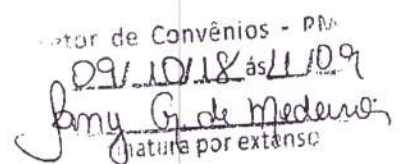 etor de Convênios - PM
09/10/18 ás 11/09
Samy G. de Medeiros
natura por extenso